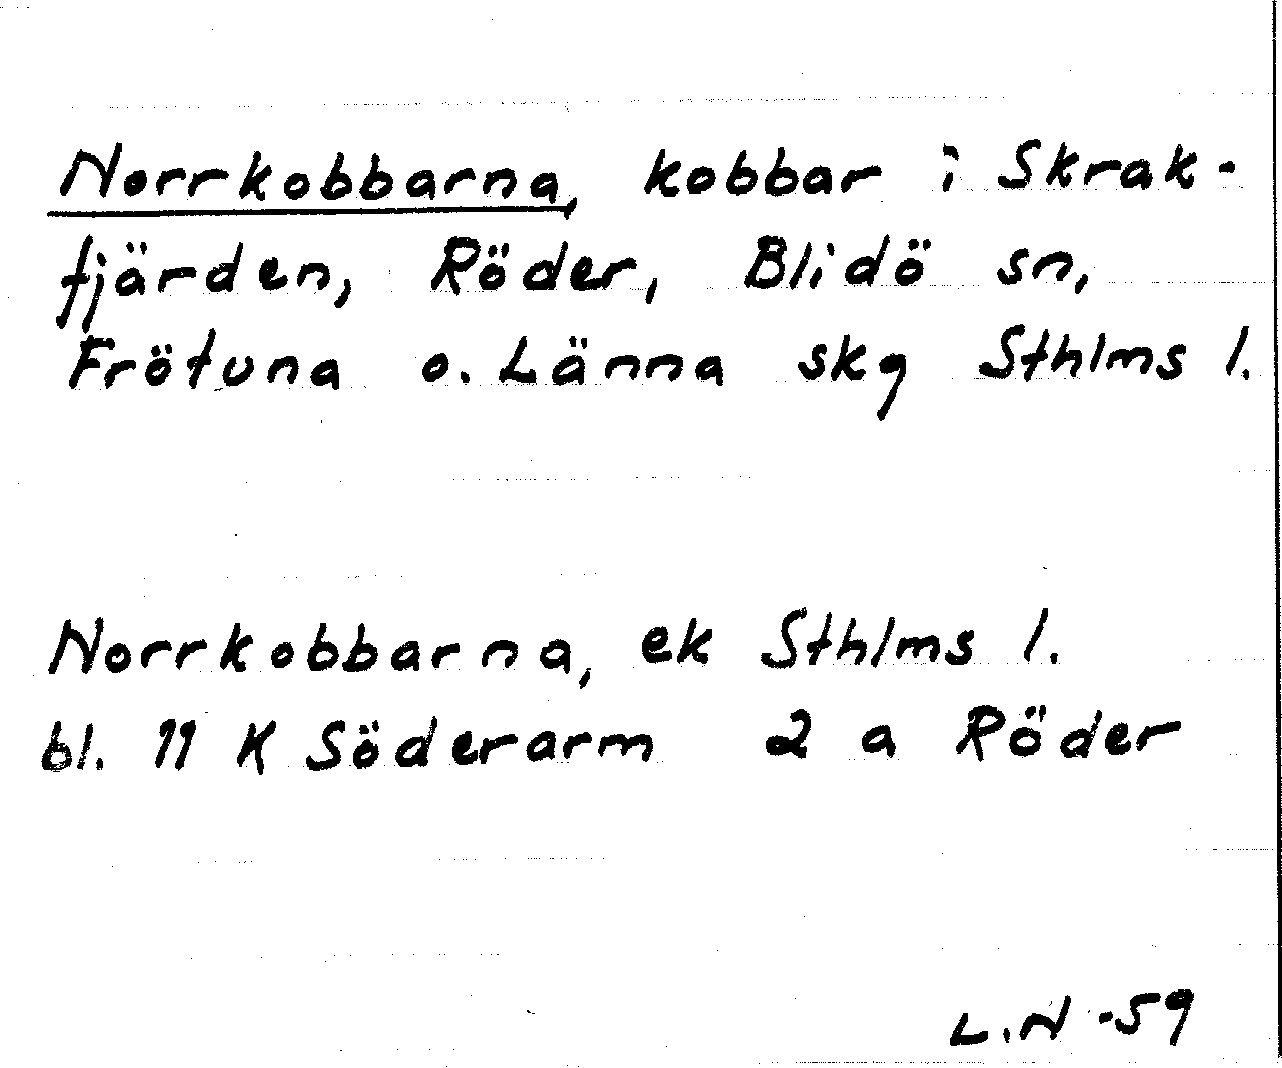 Norrkobbarna, kobbar i Skrak-
fjärden, Röder, Blidö sn,
Frötuna o. Länna skg Sthlms l.
Norrkobbarna, ek Sthlms l.
bl. 11 K Söderarm 2 a Röder
L.N -59